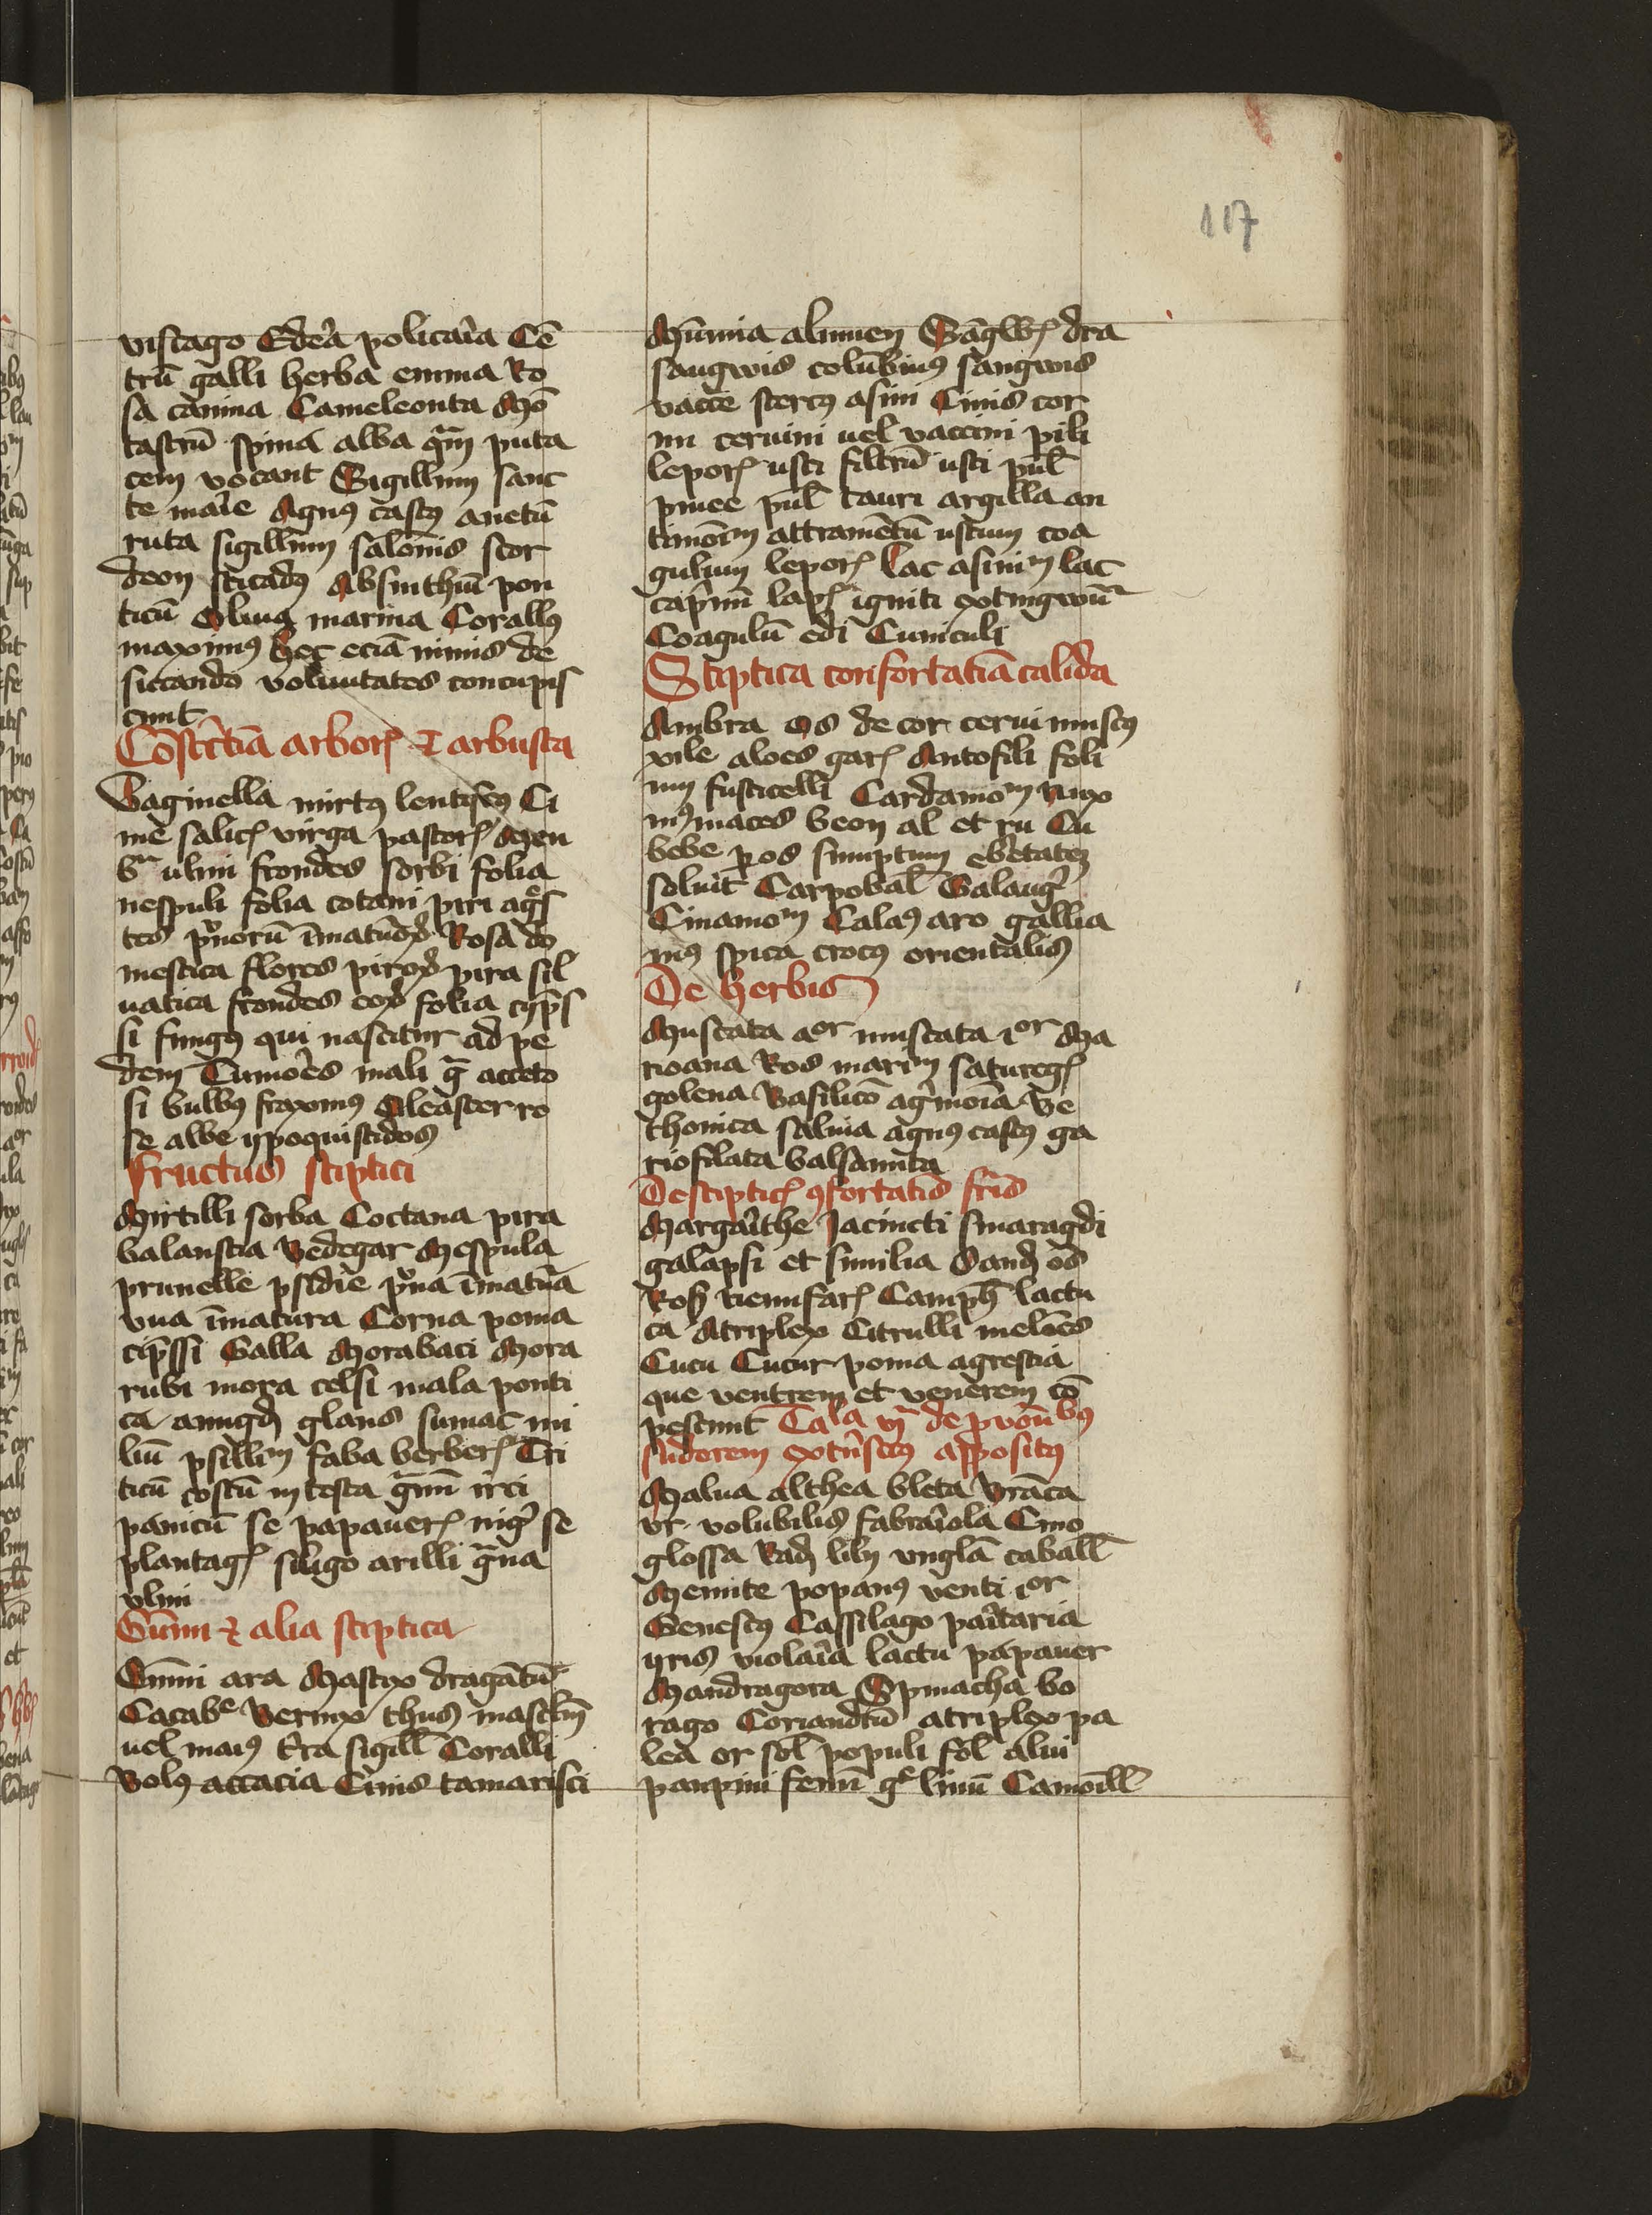 117
viscago Edeˀa policaˀia Cē
trū galli herba emma Ro
sa canina Cameleonta Mō
tastrū spina alba qͣm puta
cem vocant Sigillum sanc
te maˀie Agnꝰ castꝰ anetū
ruta sigillum salōnis scor
deon sticadꝰ Absinthiū pon
ticū Oliua marina Corallꝰ
maximꝰ hec eciā nimis de
siccando voluntates concupis
cunt
Cōstˀctiā arborꝭ ⁊ arbusta
Vaginella mirtꝰ lentiscꝰ Ci
me salicꝭ virga pastorꝭ Men
ulmi frondes sorbi folia
nespuli folia cotani piri agˀs
tes pˀnorū īmatuꝝ Rosa do
mestica flores piroꝝ pira sil
uatica frondes eoꝝ folia cyp̄s
si fungꝰ qui nascitur ad pe
dem Tumoˀes mali gͣ acceto
si bulbꝰ fraxinus Oleaster ro
se albe ypoquistidos
Fructus stiptici
Mirtilli sorba Coctana pira
balaustia Bedegar Mespula
prunelle psidie pˀna īmatuˀa
vua īmatura Corna poma
cip̄ssi Galla Morabaci Mora
rubi mora celsi mala ponti
ca amigdꝭ glans sumac mi
liū psillium faba berberꝭ Tri
ticū costū in testa gͣnū irci
panicū se papauerꝭ nigˀ se
plantagꝭ siligo arilli gͣna
vlmi
Gūmi ⁊ alia stiptica
Gūmi ara Mastix dragātū
Cacabͤ Vernix thus masclm̄
uel maiꝰ t̄ra sigill̄ Coralli
Bolꝰ accacia Cinis tamarisci
Mūmia alumen Sāgwꝭ dra
sangwis columbinꝰ sangwis
vacce stercꝰ asini Cinis cor
nu ceruini uel vaccini pili
leporꝭ usti filtrū usti pul̄
pinee pul̄ tauri argilla an
timōiͫ attramētū ustum coa
gulum leporꝭ Lac asiniͫ lac
capˀinū lapꝭ igniti extingwūᷓ
Coagulū edi Cuniculi
Stiptica confortatiā calida
Ambra os de cor cerui muscꝰ
xile aloes garꝭ Antofili foli
um fusticelli Cardamoͫ nux
mꝰ maces been al et ru Cu
bebe ꝑ os sumptum ebetateꝫ
soluit Carpobal̄ Galangˀ
Cinamoͫ Calaꝰ aro gallia
mꝰ spica crocꝰ orientalis
De herbis
Muscata aͦr muscata ıͦr Ma
riorana Ros mariͫ saturegꝭ
golena Basilicō agˀimoīa Be
thonica saluia agnꝰ castꝰ ga
riofilata balsamita
De stipticꝭ ꝯfortatis fris
Margaˀithe Jacincti smaragdi
galapsi et similia Sandꝭ os
Rosꝭ nenufarꝭ Camph̄ lactu
ca Atriplex Citrulli melōes
Cucu Cucur poma agrestia
que ventrem et venerem cō
pescunt Ca la vͫ de prouoūbꝰ
sudorem extˀinscꝰ appositꝰ
Malua althea bleta Brāca
vr volubilis fabraˀiola Cino
glossa Radꝭ lily vngla caball̄
Menite popanꝰ venti ıͦr
Genestꝰ Cassilago paˀitaria
yris violaˀia lactu papauer
Mandragora Spinacha bo
rago Coriandrū atriplex pa
lea or fol̄ populi fol̄ alui
panpini fenū gͤ linū Camoill̄